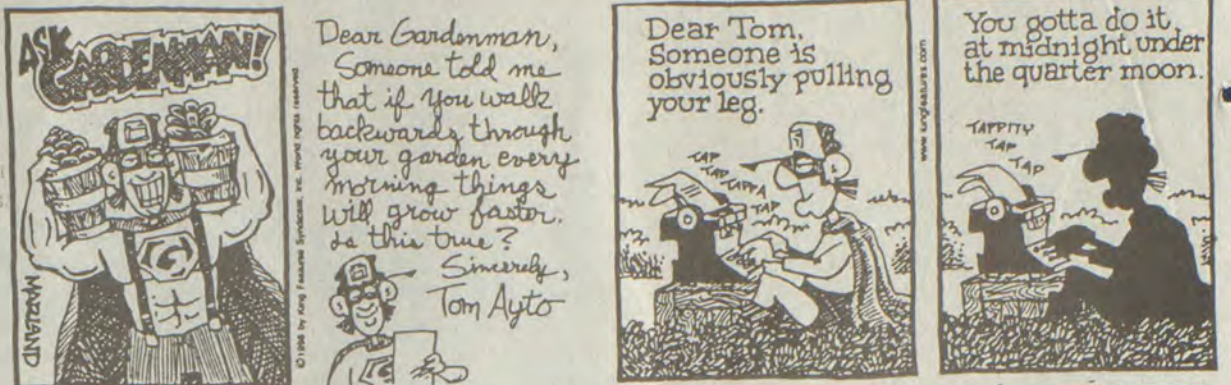 ASK
GARDENMAN!
G
MARLAND
©1998 by King Features Syndicate, Inc. World rights reserved.
Dear Gardenman,
Someone told me
that if you walk
backwards through
your garden every
morning things
will grow faster.
Is this true?
Sincerely,
Tom Ayto
Dear Tom,
Someone is
obviously pulling
your leg.
TAP
TAP
TAPPA
TAP
www.kingfeatures.com
You gotta do it
at midnight under
the quarter moon.
TAPPITY
TAP
TAP